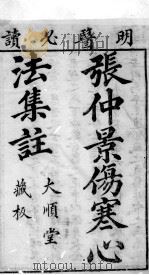 明醫必讀
張仲景傷寒心
法集註
大順堂
藏板
mtoou.info mtoou.info